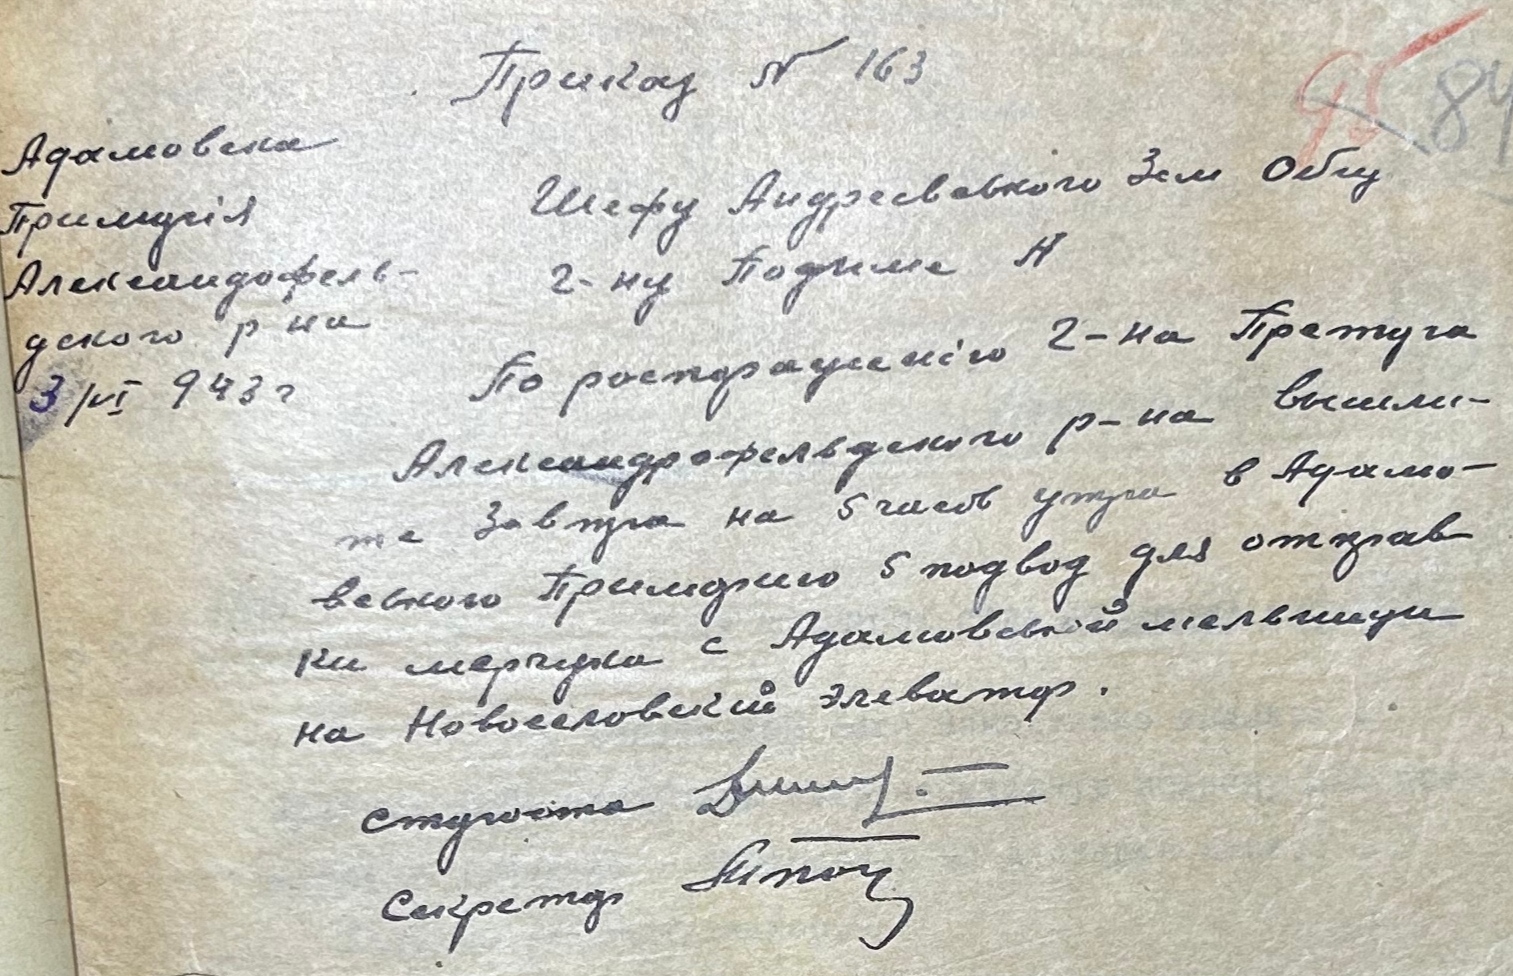 Приказ № 163
95 84
Адамовска
Примария
Александофель-
дского р на
3/VI 943 г
Шефу Андреевського Зем Общ
г-ну Подиме Н
По роспоряженію г-на Претура
Александрофельдского р-на вышли-
те Завтра на 5 часов утра в Адамо-
вского Примарию 5 подвод для отправ
ки мерчука с Адамовской мельници
на Новоселовский элеватор.
Староста
Секретар